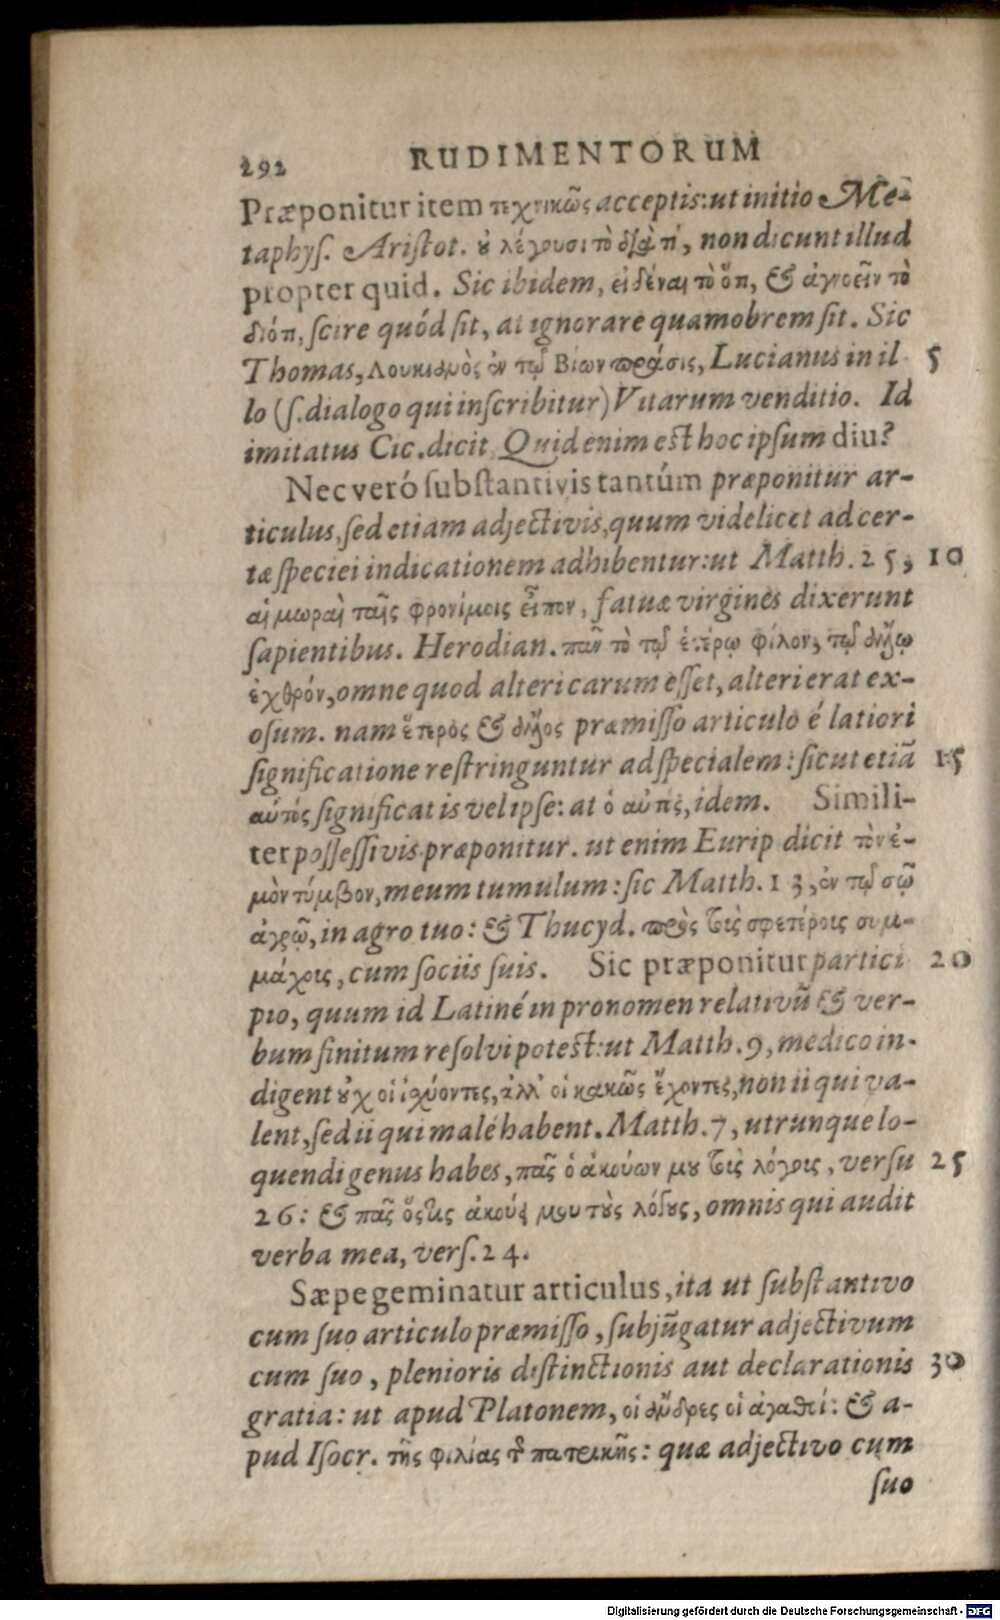 292 RUDIMENTORUM
Præponitur item τεχνικῶς acceptis: ut initio Me-
taphyſ. Ariſtot. ȣ̓ λέγουσι τὸ διὰ τί, non dicunt illud
propter quid. Sic ibidem, εἰδέναι τὸ ὅτι, & ἀγνοεῖν τὸ
διότι, ſcire quód ſit, at ignorare quamobrem ſit. Sic
Thomas, Λουκιανὸς ἐν τῷ Βίων πρᾶσις, Lucianus in il 5
lo (ſ. dialogo qui inſcribitur) Vitarum venditio. Id
imitatus Cic. dicit, Quid enim est hoc ipſum diu?
Nec veró ſubſtantivis tantúm præponitur ar-
ticulus, ſed etiam adjectivis, quum videlicet ad cer-
tæ ſpeciei indicationem adhibentur: ut Matth. 25, 10
αἱ μωραὶ ταῖς φρονίμοις εἶπον, fatuæ virgines dixerunt
ſapientibus. Herodian. πᾶν τὸ τῷ ἑτέρῳ φίλον, τῷ ἄλλῳ
ἐχθρόν, omne quod alteri carum eſſet, alteri erat ex-
oſum. nam ἕτερος & ἄλλος præmiſſo articulo é latiori
ſignificatione reſtringuntur ad ſpecialem: ſicut etiã 15
αὐτός ſignificat is vel ipſe: at ὁ αὐτός, idem. Simili-
ter poſſeſſivis præponitur. ut enim Eurip dicit τὸν ἐ-
μὸν τύμβον, meum tumulum: ſic Matth. 13, ἐν τῷ σῷ
ἀγρῷ, in agro tuo: & Thucyd. πρὸς τοῖς σφετέροις συμ-
μάχοις, cum ſociis ſuis. Sic præponitur partici 20
pio, quum id Latiné in pronomen relativũ & ver-
bum finitum reſolvi potest: ut Matth. 9, medico in-
digent ȣ̓χ οἱ ἰσχύοντες, ἀλλ' οἱ κακῶς ἔχοντες, non ii qui va-
lent, ſed ii qui malé habent. Matth. 7, utrunque lo-
quendi genus habes, πᾶς ὁ ἀκούων μȣ τοὺς λόγοις, verſu 25
26: & πᾶς ὅστις ἀκούει μου τȣ̀ς λόγȣς, omnis qui audit
verba mea, verſ. 24.
Sæpe geminatur articulus, ita ut ſubſtantivo
cum ſuo articulo præmiſſo, ſubjũgatur adjectivum
cum ſuo, plenioris diſtinctionis aut declarationis 30
gratia: ut apud Platonem, οἱ ἄνδρες οἱ ἀγαθοί: & a-
pud Iſocr. τῆς φιλίας τῆς πατρικῆς: quæ adjectivo cum
ſuo
Digitalisierung gefördert durch die Deutsche Forschungsgemeinschaft - DFG